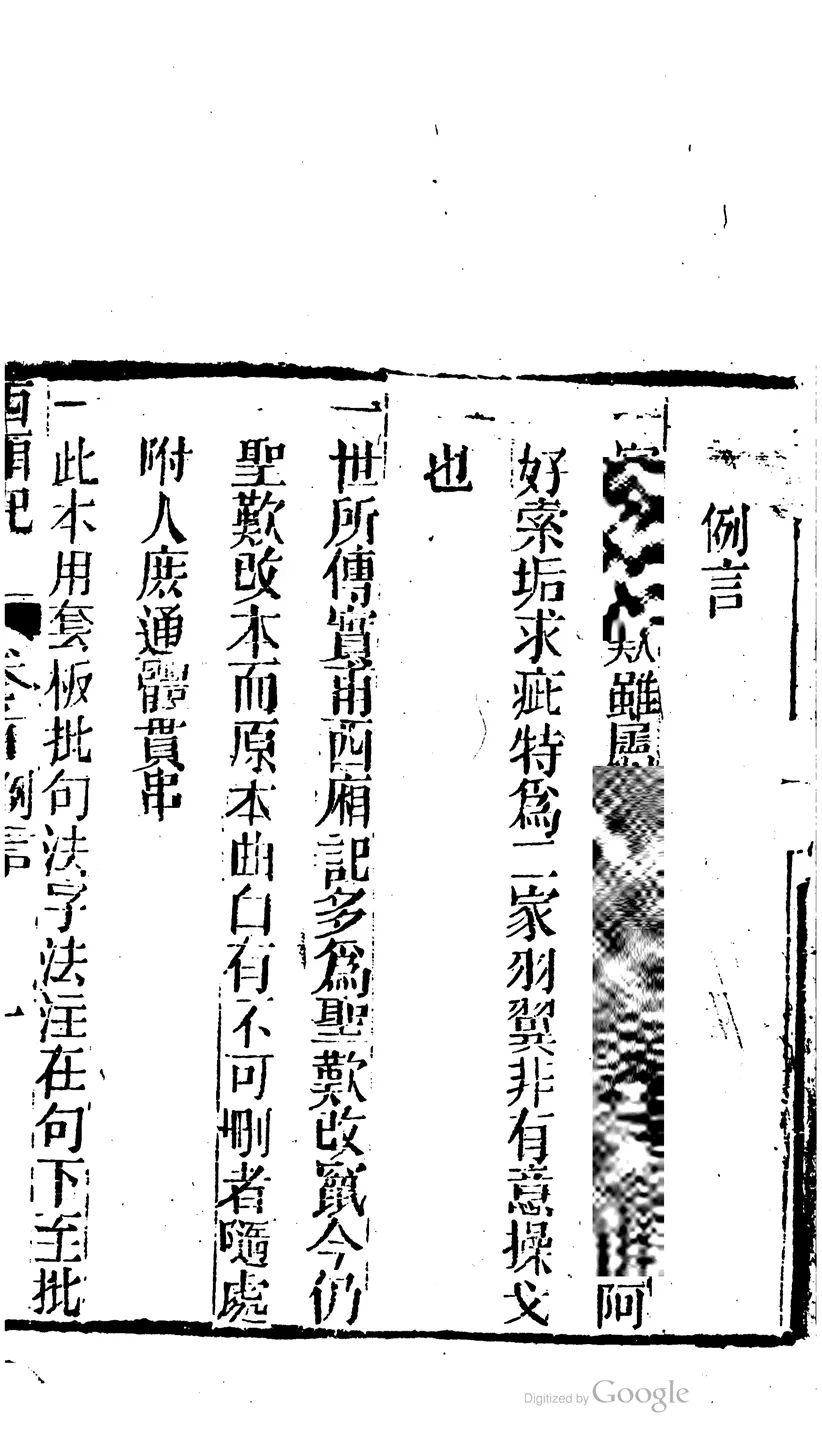 例言
一 歎雖屬 阿
好索垢求疵特爲二家羽翼非有意操戈
也
一世所傳實甫西廂記多爲聖歎改竄今仍
聖歎改本而原本曲白有不可刪者隨處
附入庶通體貫串
一此本用套板批句法字法注在句下至批
西廂記 卷首例言 一
Digitized by Google